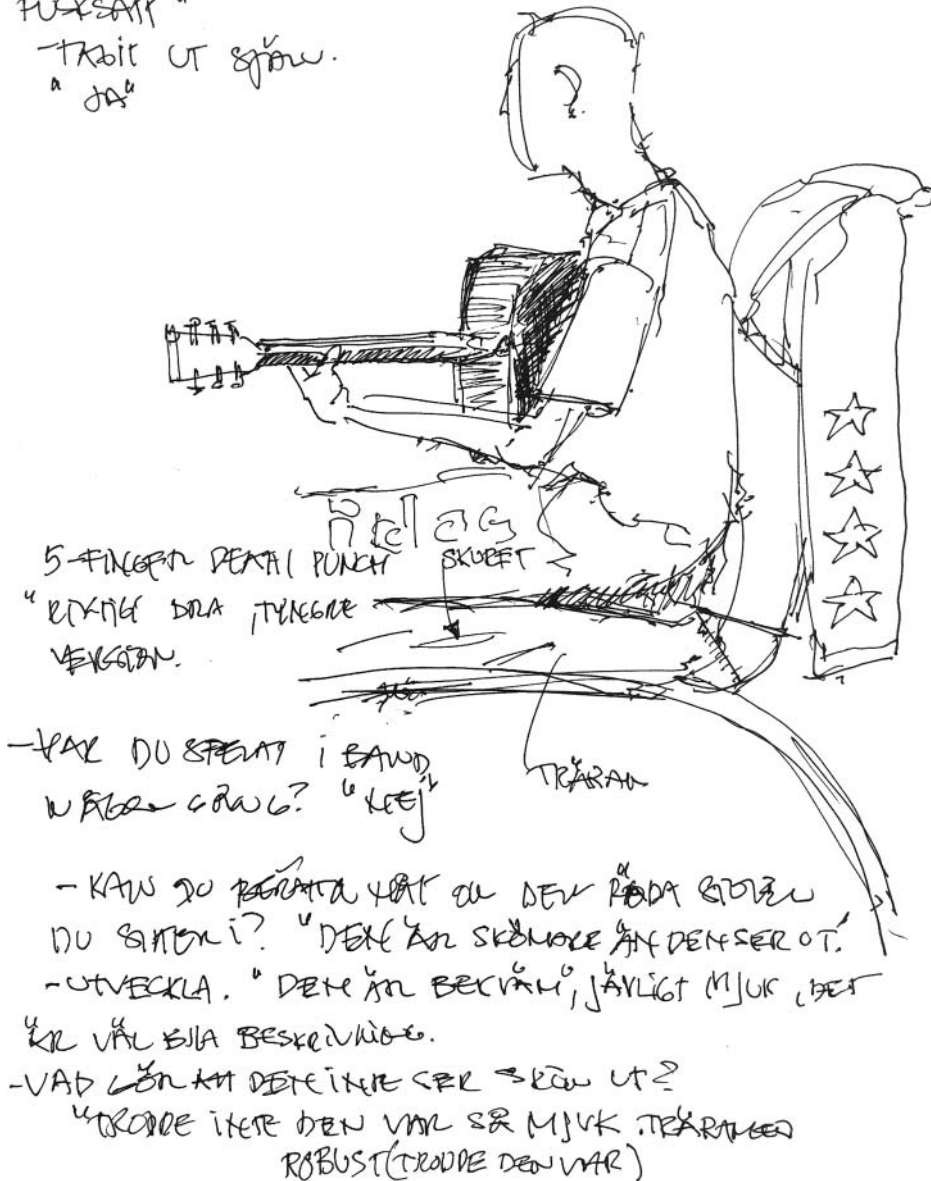 UT SJÄLV.
"JA"
idag
5-FINGER DEATH PUNCH
SKURET
"RIKTIGT BRA, TYNGRE
VERSION.
-HAR DU SPELAT i BAND
NÅGON GÅNG? "NEJ"
TRÄRAM
-KAN DU BERÄTTA OM DEN RÖDA STOLEN
DU SITTER i? "DEN ÄR SKÖNARE ÄN DEN SER UT.
-UTVECKLA. "DEN ÄR BEKVÄM", JÄVLIGT MJUK, DET
ÄR VÄL BRA BESKRIVNING.
-VAD GÖR ATT DEN INTE SER SKÖN UT?
"TRODDE INTE DEN VAR SÅ MJUK. TRÄRAMEN
ROBUST (TRODDE DEN VAR)